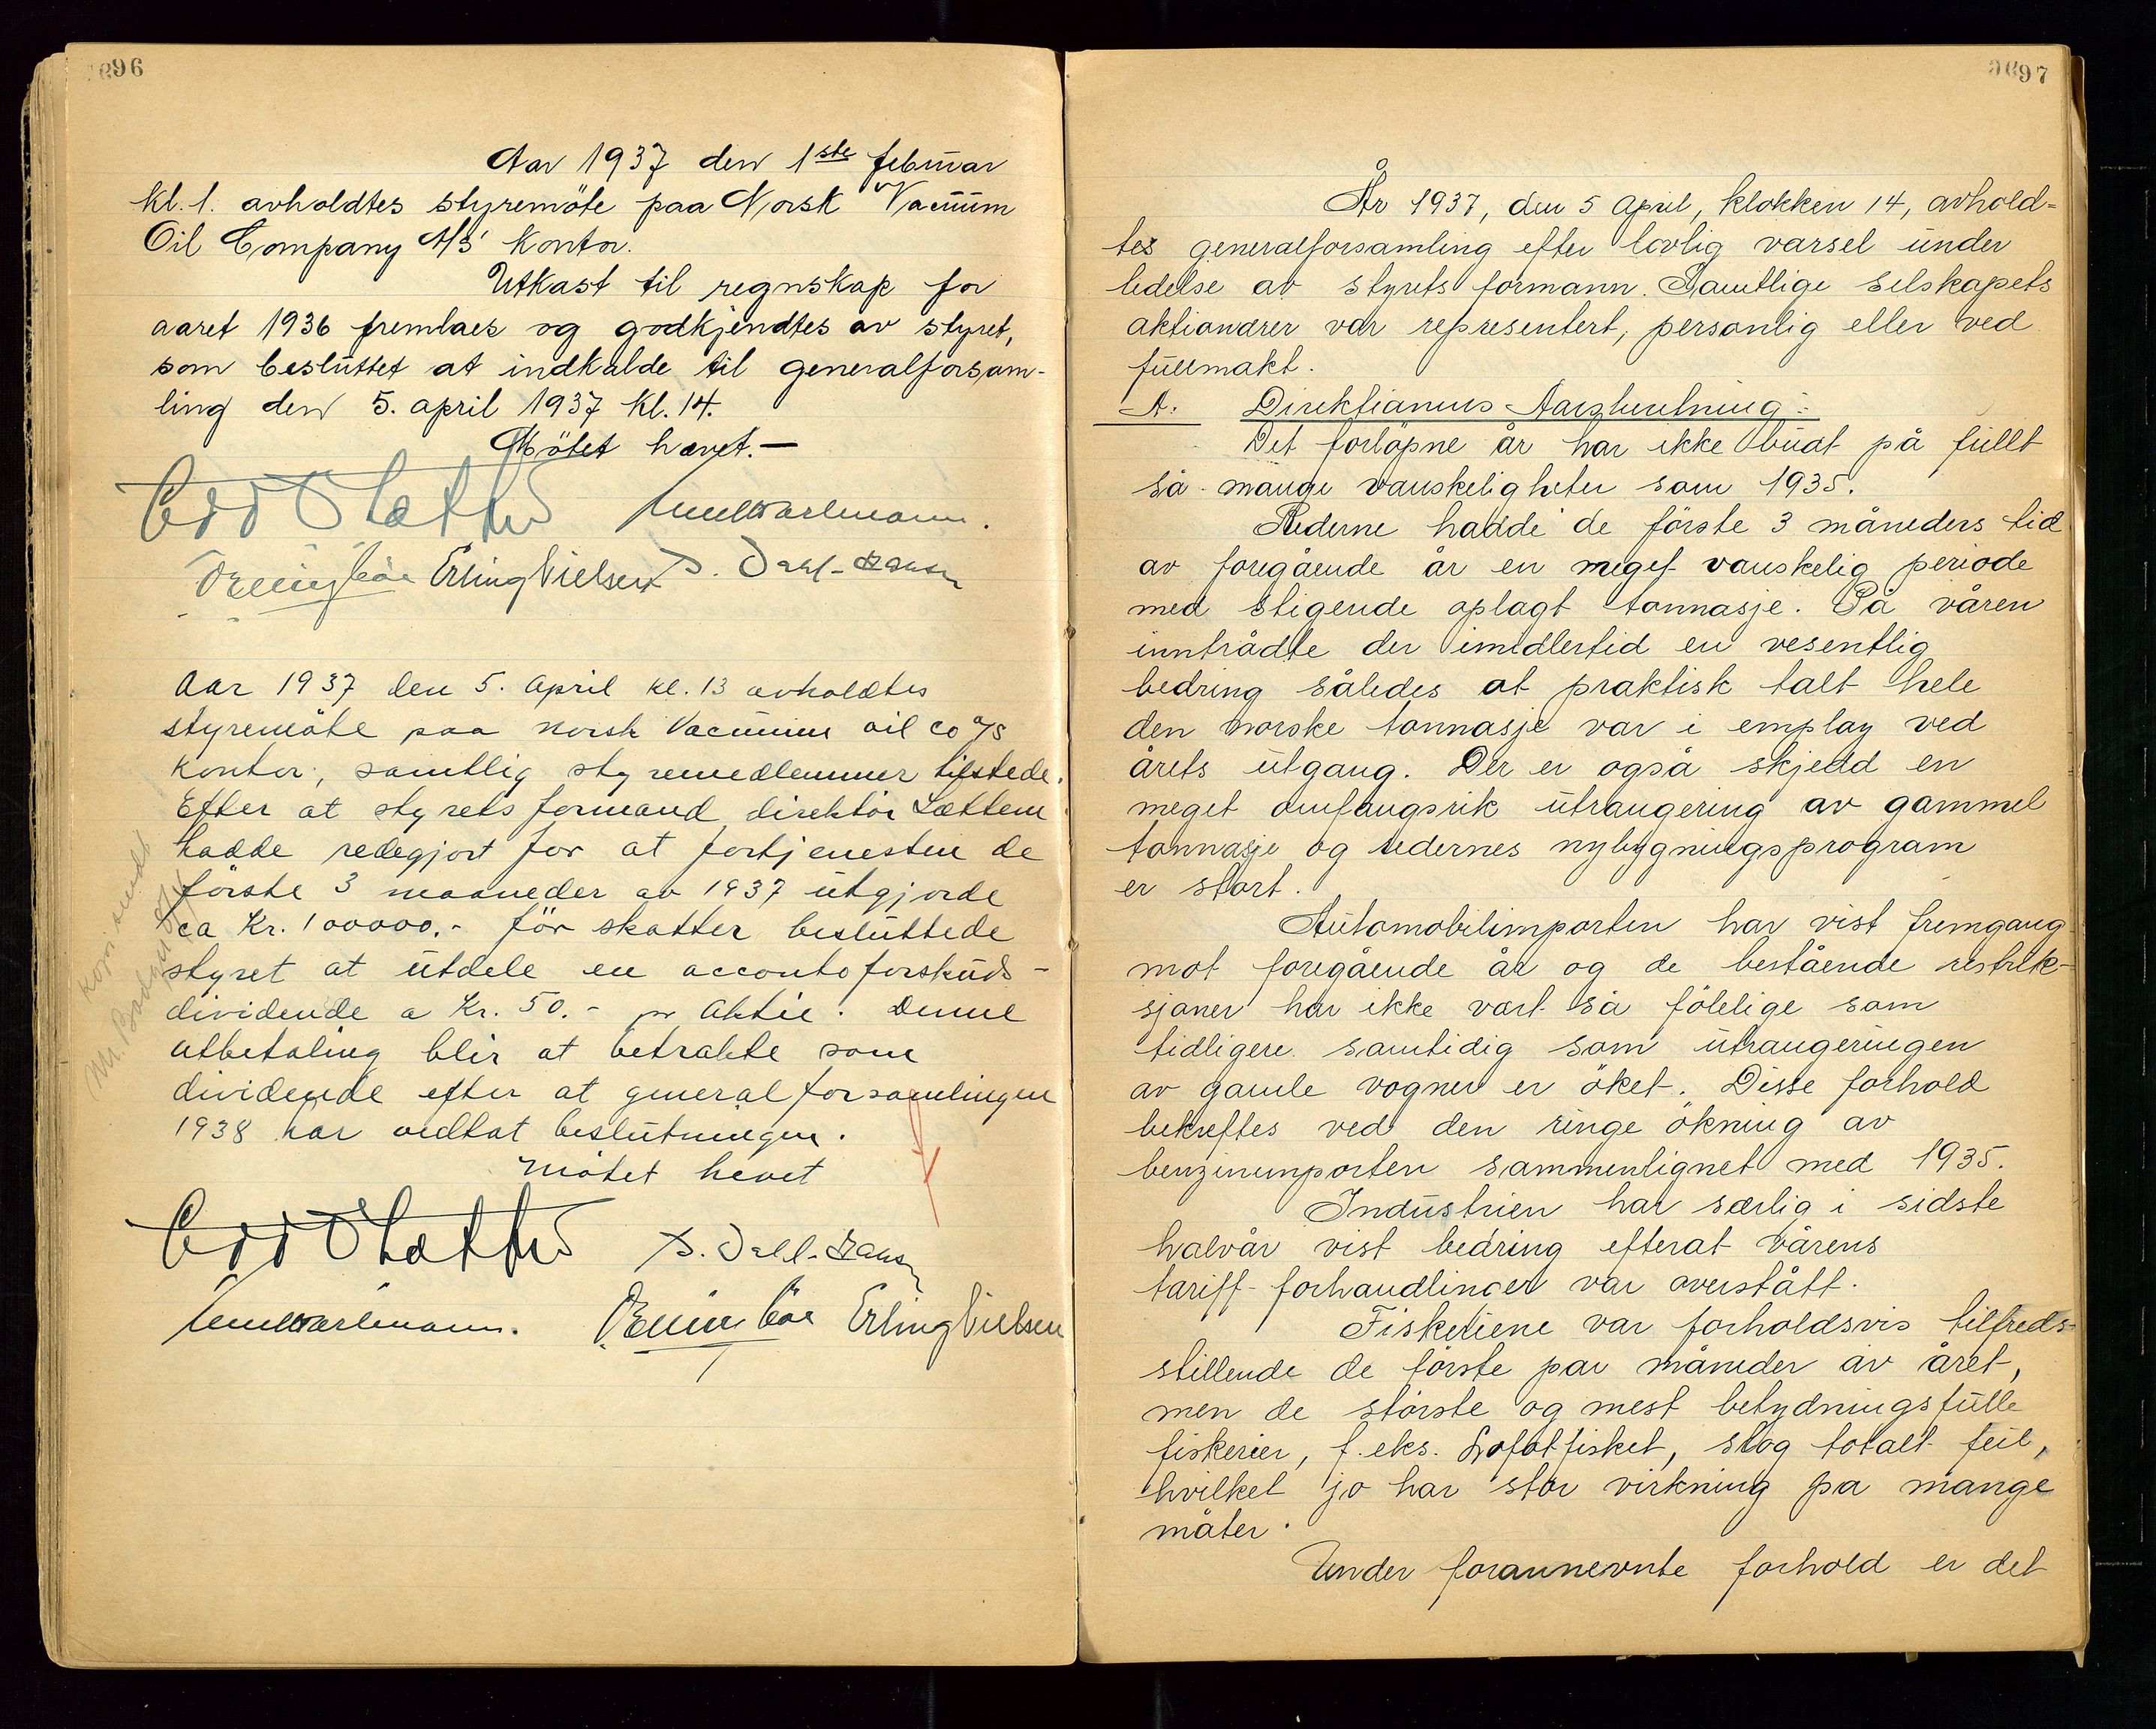 96
Aar 1937 den 1ste februar
kl. 1. avholdtes styremöte paa Norsk Vacuum
Oil Company A/S' kontor.
Utkast til regnskap for
aaret 1936 fremlaes og godkjendtes av styret,
som besluttet at indkalde til generalforsam-
ling den 5. april 1937 kl. 14.
Mötet hævet. —
Erling Nielsen S. Dahl-Hansen
Aar 1937 den 5. april kl. 13 avholdtes
styremöte paa Norsk Vacuum oil co a/s
kontor, samtlig styremedlemmer tilstede.
Efter at styrets formand direktör Lættem
hadde redegjort for at fortjenesten de
förste 3 maaneder av 1937 utgjorde
ca Kr. 100000.- för skatter besluttede
styret at utdele en accontoforskuds-
dividende a Kr. 50.- pr aktie. Denne
utbetaling blir at betrakte som
dividende efter at generalforsamlingen
1938 har vedtat beslutningen.
Mötet hevet
S. Dahl-Hansen
Erling Nielsen
Kopi sendt
97
År 1937, den 5 april, klokken 14, avhold-
tes generalforsamling efter lovlig varsel under
ledelse av styrets formann. Samtlige selskapets
aktionærer var representert, personlig eller ved
fullmakt.
A. Direktionens Aarsberetning:
Det forlöpne år har ikke budt på fullt
så mange vanskeligheter som 1935.
Rederne hadde de förste 3 måneders tid
av foregående år en meget vanskelig periode
med stigende oplagt tonnasje. På våren
inntrådte der imidlertid en vesentlig
bedring således at praktisk talt hele
den norske tonnasje var i employ ved
årets utgang. Der er også skjedd en
meget omfangsrik utrangering av gammel
tonnasje og redernes nybygningsprogram
er stort.
Automobilimporten har vist fremgang
mot foregående år og de bestående restrik-
sjoner har ikke vært så fölelige som
tidligere samtidig som utrangeringen
av gamle vogner er öket. Disse forhold
bekreftes ved den ringe ökning av
benzinimporten sammenlignet med 1935.
Industrien har særlig i sidste
halvår vist bedring efterat vårens
tariff-forhandlinger var overstått.
Fiskeriene var forholdsvis tilfreds-
stillende de förste par måneder av året,
men de störste og mest betydningsfulle
fiskerier, f. eks. Lofotfisket, slog totalt feil,
hvilket jo har stor virkning på mange
måter.
Under forannevnte forhold er det